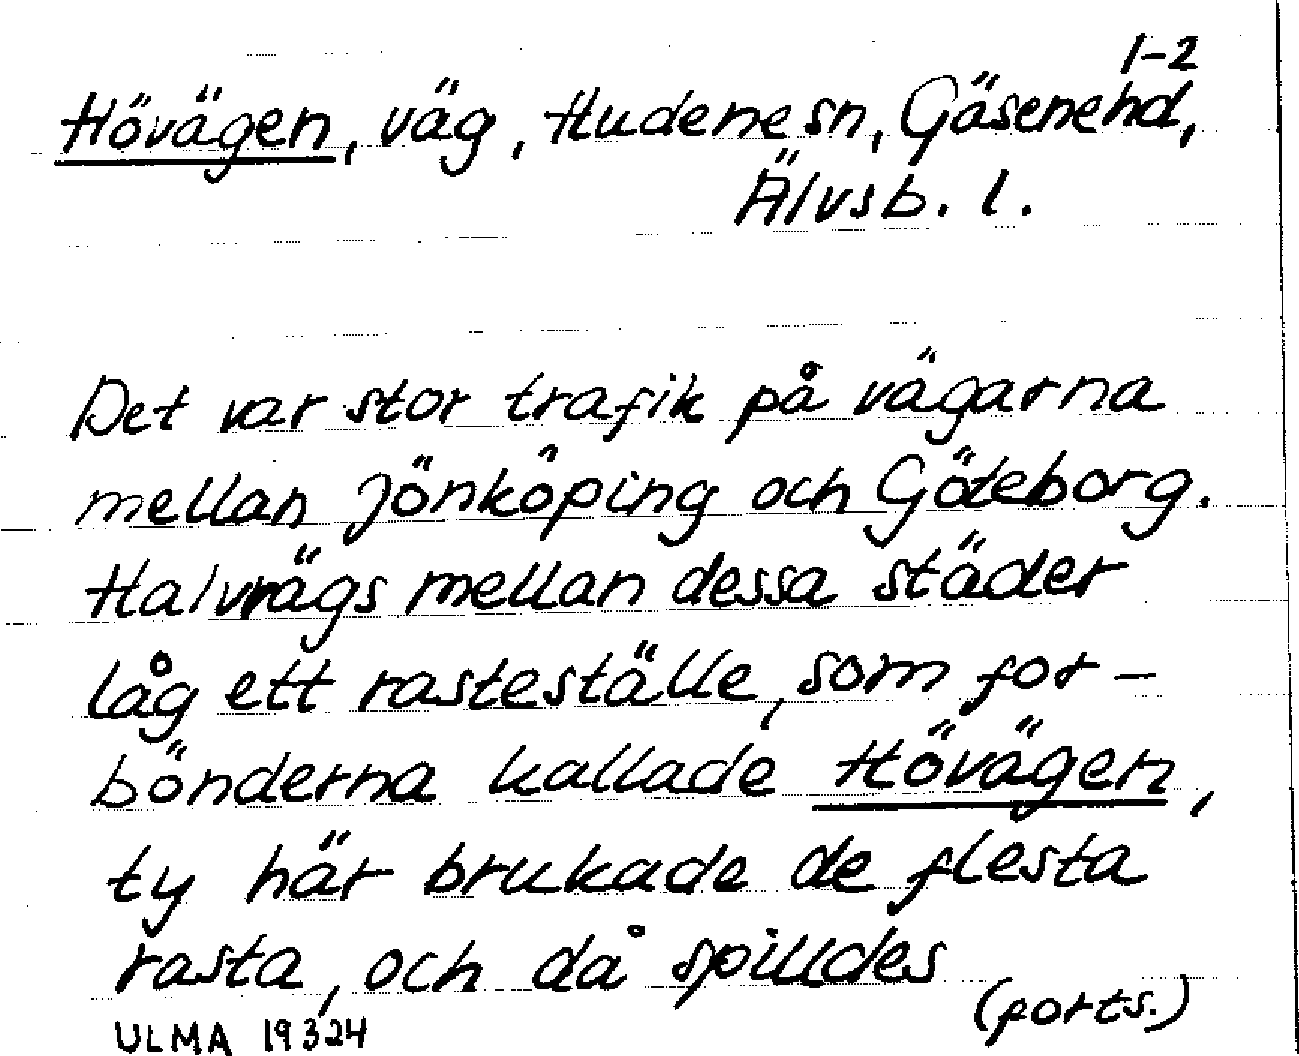 1-2
Hövägen, väg, Hudene sn, Gäsene hd,
Älvsb. l.
Det var stor trafik på vägarna
mellan Jönköping och Göteborg.
Halvvägs mellan dessa städer
låg ett rasteställe, som for-
bönderna kallade Hövägen,
ty här brukade de flesta
rasta, och då spilldes
(forts.)
ULMA 19324